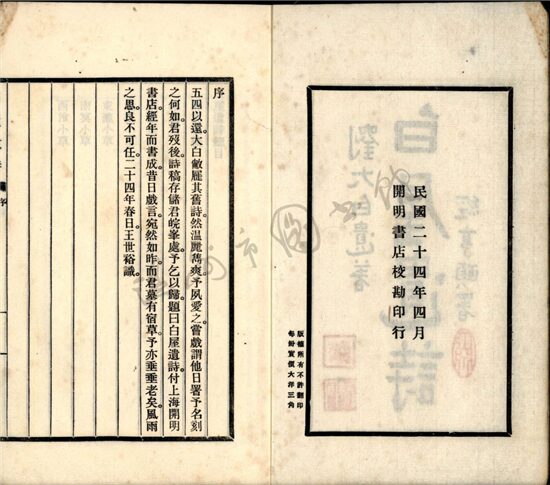 民國二十四年四月
開明書店校勘印行
版權所有不許翻印
每冊實價大洋三角
劉大白遺著
序
五四以還大白敝屣其舊詩然溫麗雋爽予夙愛之嘗戲謂他日署予名刻
之何如君歿後詩稿存儲君皖峯處予乞以歸題曰白屋遺詩付上海開明
書店經年而書成昔日戲言宛然如昨而君墓有宿草予亦垂垂老矣風雨
之思良不可任二十四年春日王世裕識